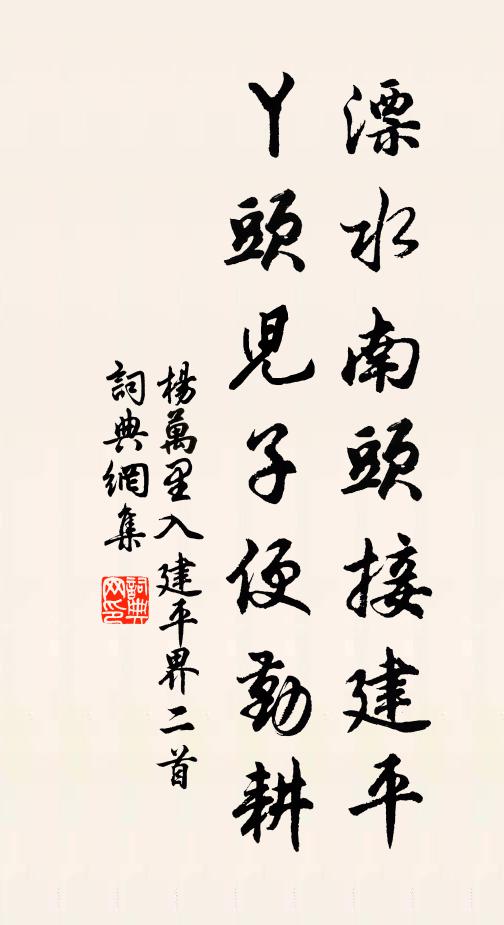 溧水南頭接建平
丫頭兒子便勤耕
楊萬里入建平界二首
詞典網集
詞典网印